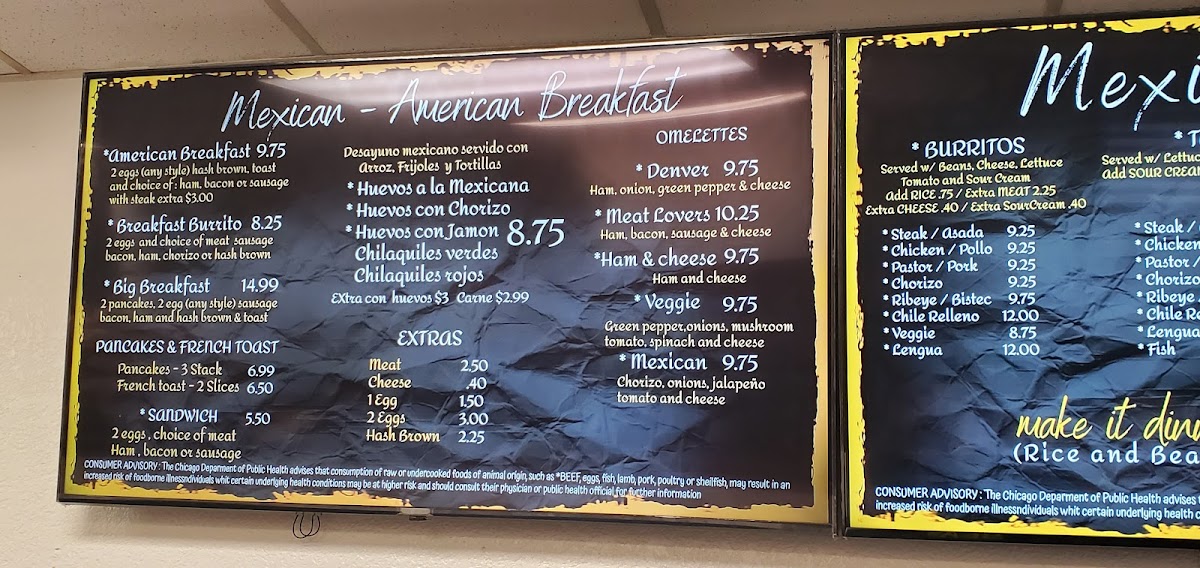 Mexican - American Breakfast
*American Breakfast 9.75
2 eggs (any style) hash brown, toast
and choice of : ham, bacon or sausage
with steak extra $3.00
*Breakfast Burrito 8.25
2 eggs and choice of meat sausage
bacon, ham, chorizo or hash brown
*Big Breakfast 14.99
2 pancakes, 2 egg (any style) sausage
bacon, ham and hash brown & toast
PANCAKES & FRENCH TOAST
Pancakes - 3 Stack 6.99
French toast - 2 Slices 6.50
*SANDWICH 5.50
2 eggs , choice of meat
Ham , bacon or sausage
Desayuno mexicano servido con
Arroz, Frijoles y Tortillas
*Huevos a la Mexicana
*Huevos con Chorizo
*Huevos con Jamon 8.75
Chilaquiles verdes
Chilaquiles rojos
EXtra con huevos $3 Carne $2.99
EXTRAS
Meat 2.50
Cheese .40
1 Egg 1.50
2 Eggs 3.00
Hash Brown 2.25
OMELETTES
*Denver 9.75
Ham, onion, green pepper & cheese
*Meat Lovers 10.25
Ham, bacon, sausage & cheese
*Ham & cheese 9.75
Ham and cheese
*Veggie 9.75
Green pepper,onions, mushroom
tomato, spinach and cheese
*Mexican 9.75
Chorizo, onions, jalapeño
tomato and cheese
CONSUMER ADVISORY : The Chicago Deparment of Public Health advises that consumption of raw or undercooked foods of animal origin, such as *BEEF, eggs, fish, lamb, pork, poultry or shellfish, may result in an
increased risk of foodborne illnessndividuals whit certain underlying health conditions may be at higher risk and should consult their physician or public health official for further information
Mexi
*BURRITOS
Served w/ Beans, Cheese, Lettuce
Tomato and Sour Cream
Add RICE .75 / Extra MEAT 2.25
Extra CHEESE .40 / Extra SourCream .40
*Steak / Asada 9.25
*Chicken / Pollo 9.25
*Pastor / Pork 9.25
*Chorizo 9.25
*Ribeye / Bistec 9.75
*Chile Relleno 12.00
*Veggie 8.75
*Lengua 12.00
*T
Served w/ Lettuc
Add SOUR CREA
*Steak /
*Chicken
*Pastor /
*Chorizo
*Ribeye
*Chile Re
*Lengua
*Fish
make it din
(Rice and Bea
CONSUMER ADVISORY : The Chicago Deparment of Public Health advises
increased risk of foodborne illnessndividuals whit certain underlying health c